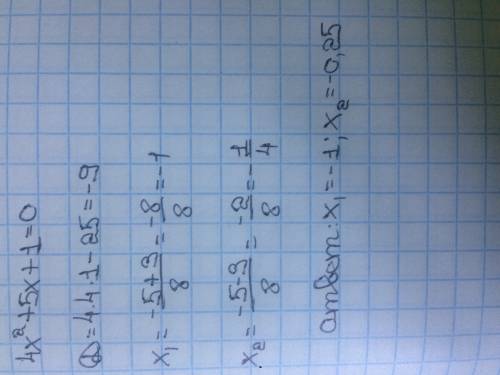 4x²+5x+1=0
D=4·4·1-25=-9
x₁=-5+3/8=-8/8=-1
x₂=-5-3/8=-2/8=-1/4
ответ: x₁=-1; x₂=-0,25